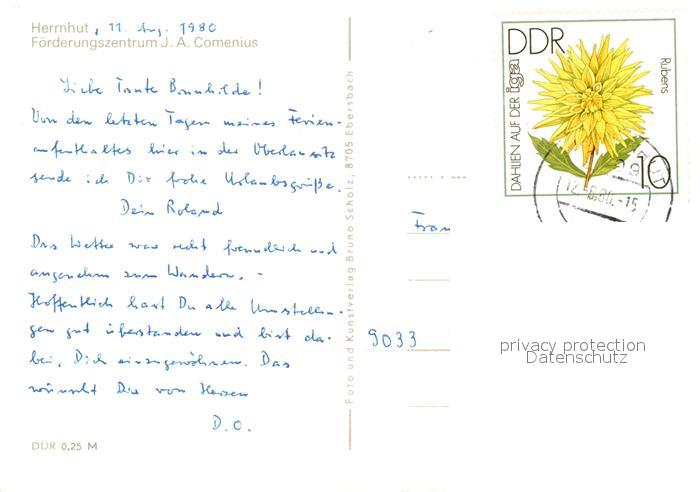 Herrnhut, 11. Aug. 1980
Förderungszentrum J. A. Comenius
Liebe Tante Brunhilde!
Von den letzten Tagen meines Ferien-
aufenthaltes hier in der Oberlausitz
sende ich Dir frohe Urlaubsgrüße.
Dein Roland
Das Wetter war recht freundlich und
angenehm zum Wandern. -
Hoffentlich hast Du alle Umstellun-
gen gut überstanden und bist da-
bei, Dich einzugewöhnen. Das
wünscht Dir von Herzen
D. O.
DDR 0,25 M
Foto und Kunstverlag Bruno Scholz, 8705 Ebersbach
Frau
9033
DDR
DAHLIEN AUF DER iga
Rubens
10
12.-8.80.-15
privacy protection
Datenschutz